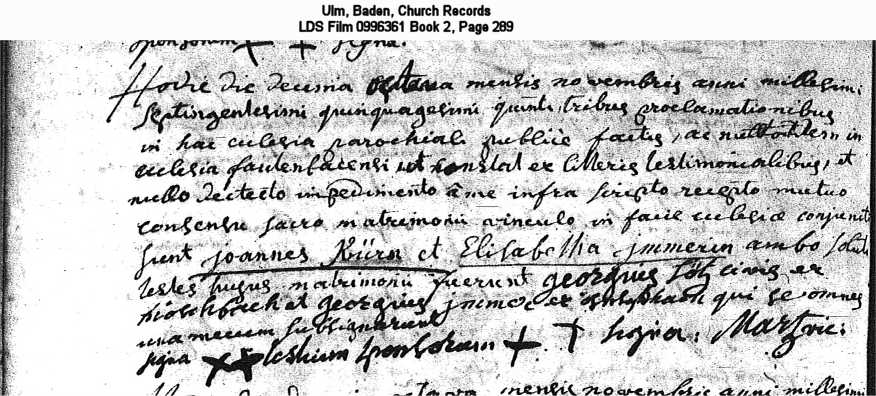 Ulm, Baden, Church Records
LDS Film 0996361 Book 2, Page 289
sponsorum + + signa.
Hodie die decima octava mensis novembris anni millesimi
septingentesimi quinquagesimi quinti tribus proclamationibus
in hac ecclesia parochiali publice factis, ac in
ecclesia fautenbacensi ut constat ex litteris testimonialibus, et
nullo detecto impedimento a me infra scripto recepto mutuo
consensu sacro matrimonii vinculo in facie ecclesiæ conjuncti
sunt joannes Kürn et Elisabetha jmmerin ambo soluti
testes hujus matrimonii fuerunt georgius civis ex
mösbach et georgius ex qui se omnes
una mecum subsignarunt
signa x x testium sponsorum + + signa:
mensis novembris anni millesimi